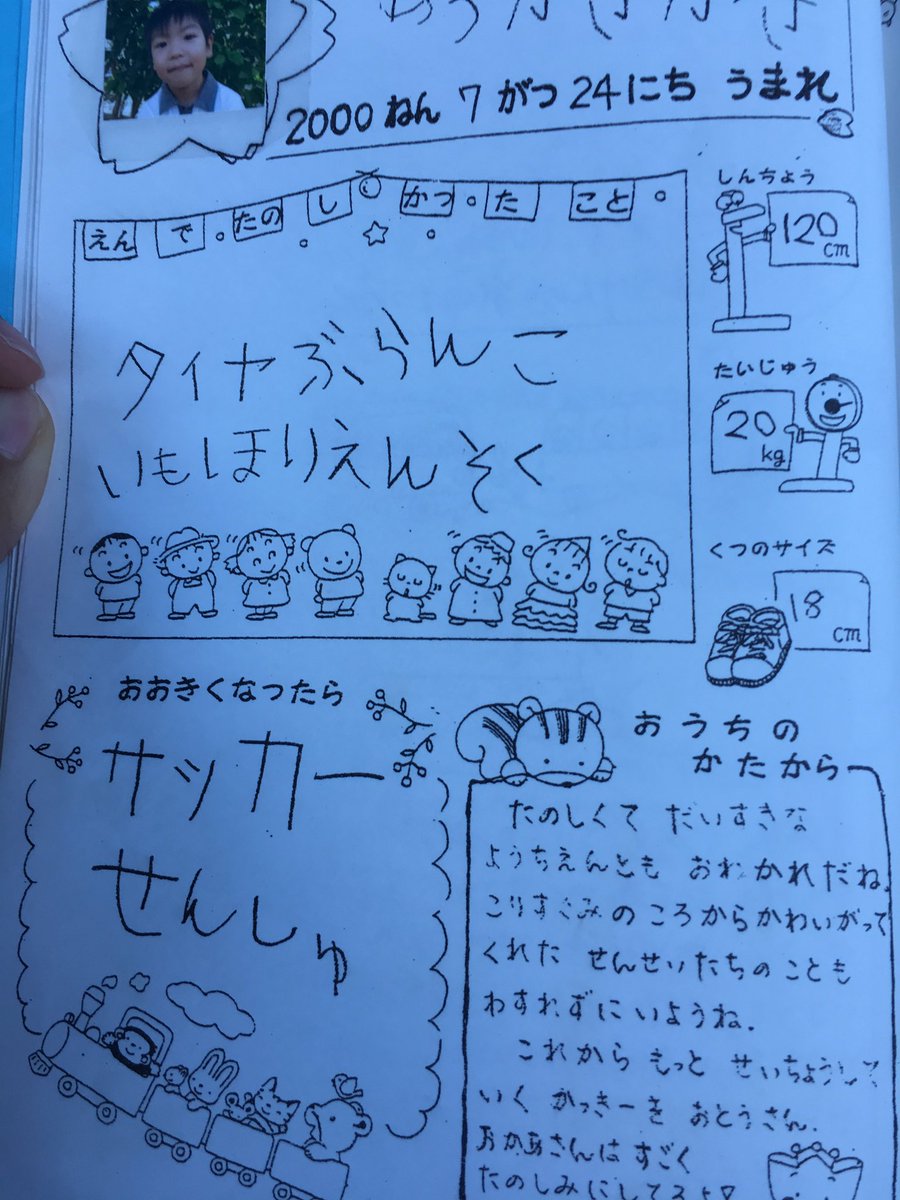 2000 ねん 7 がつ 24 にち うまれ
えんで たのしかった こと
タイヤぶらんこ
いもほりえんそく
しんちょう
120
cm
たいじゅう
20
kg
くつのサイズ
18
cm
おおきくなったら
サッカー
せんしゅ
おうちの
かたから
たのしくて だいすきな
ようちえんとも おわかれだね.
こりすぐみのころからかわいがって
くれた せんせいたちのことも
わすれずにいようね.
これから もっと せいちょうして
いく かっきーを おとうさん.
おかあさんは すごく
たのしみにしてるよ